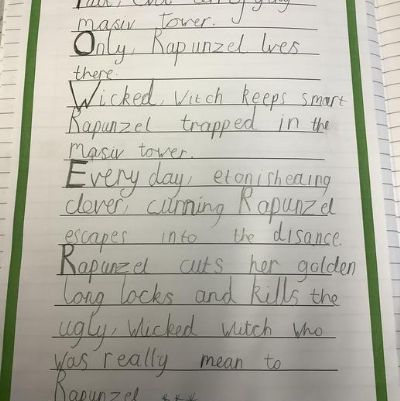 masiv tower.
Only, Rapunzel lves
there.
Wicked, Witch keeps smart
Rapunzel trapped in the
masiv tower.
Every day, etonisheding
clever, curning Rapunzel
escapes into the disance.
Rapunzel cuts her golden
long locks and kills the
ugly, Wicked witch who
was really mean to
Rapunzel ***